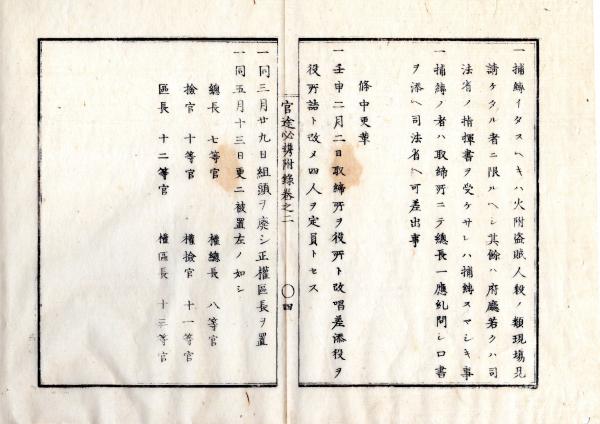 一捕縛イタスヘキハ火附盗賊人殺ノ類現場見
請ケタル者ニ限ルヘシ其餘ハ府廳若クハ司
法省ノ指揮書ヲ受ケサレハ捕縛スマシキ事
一捕縛ノ者ハ取締所ニテ總長一應糺問シ口書
ヲ添ヘ司法省ヘ可差出事
條中更革
一壬申二月二日取締所ヲ役所ト改唱差添役ヲ
役所詰ト改メ四人ヲ定員トセス
官途必携附録巻之二 〇四
一同三月廿九日組頭ヲ廃シ正權區長ヲ置
一同五月十三日更ニ被置左ノ如シ
總長 七等官 權總長 八等官
檢官 十等官 權檢官 十一等官
區長 十二等官 權區長 十三等官